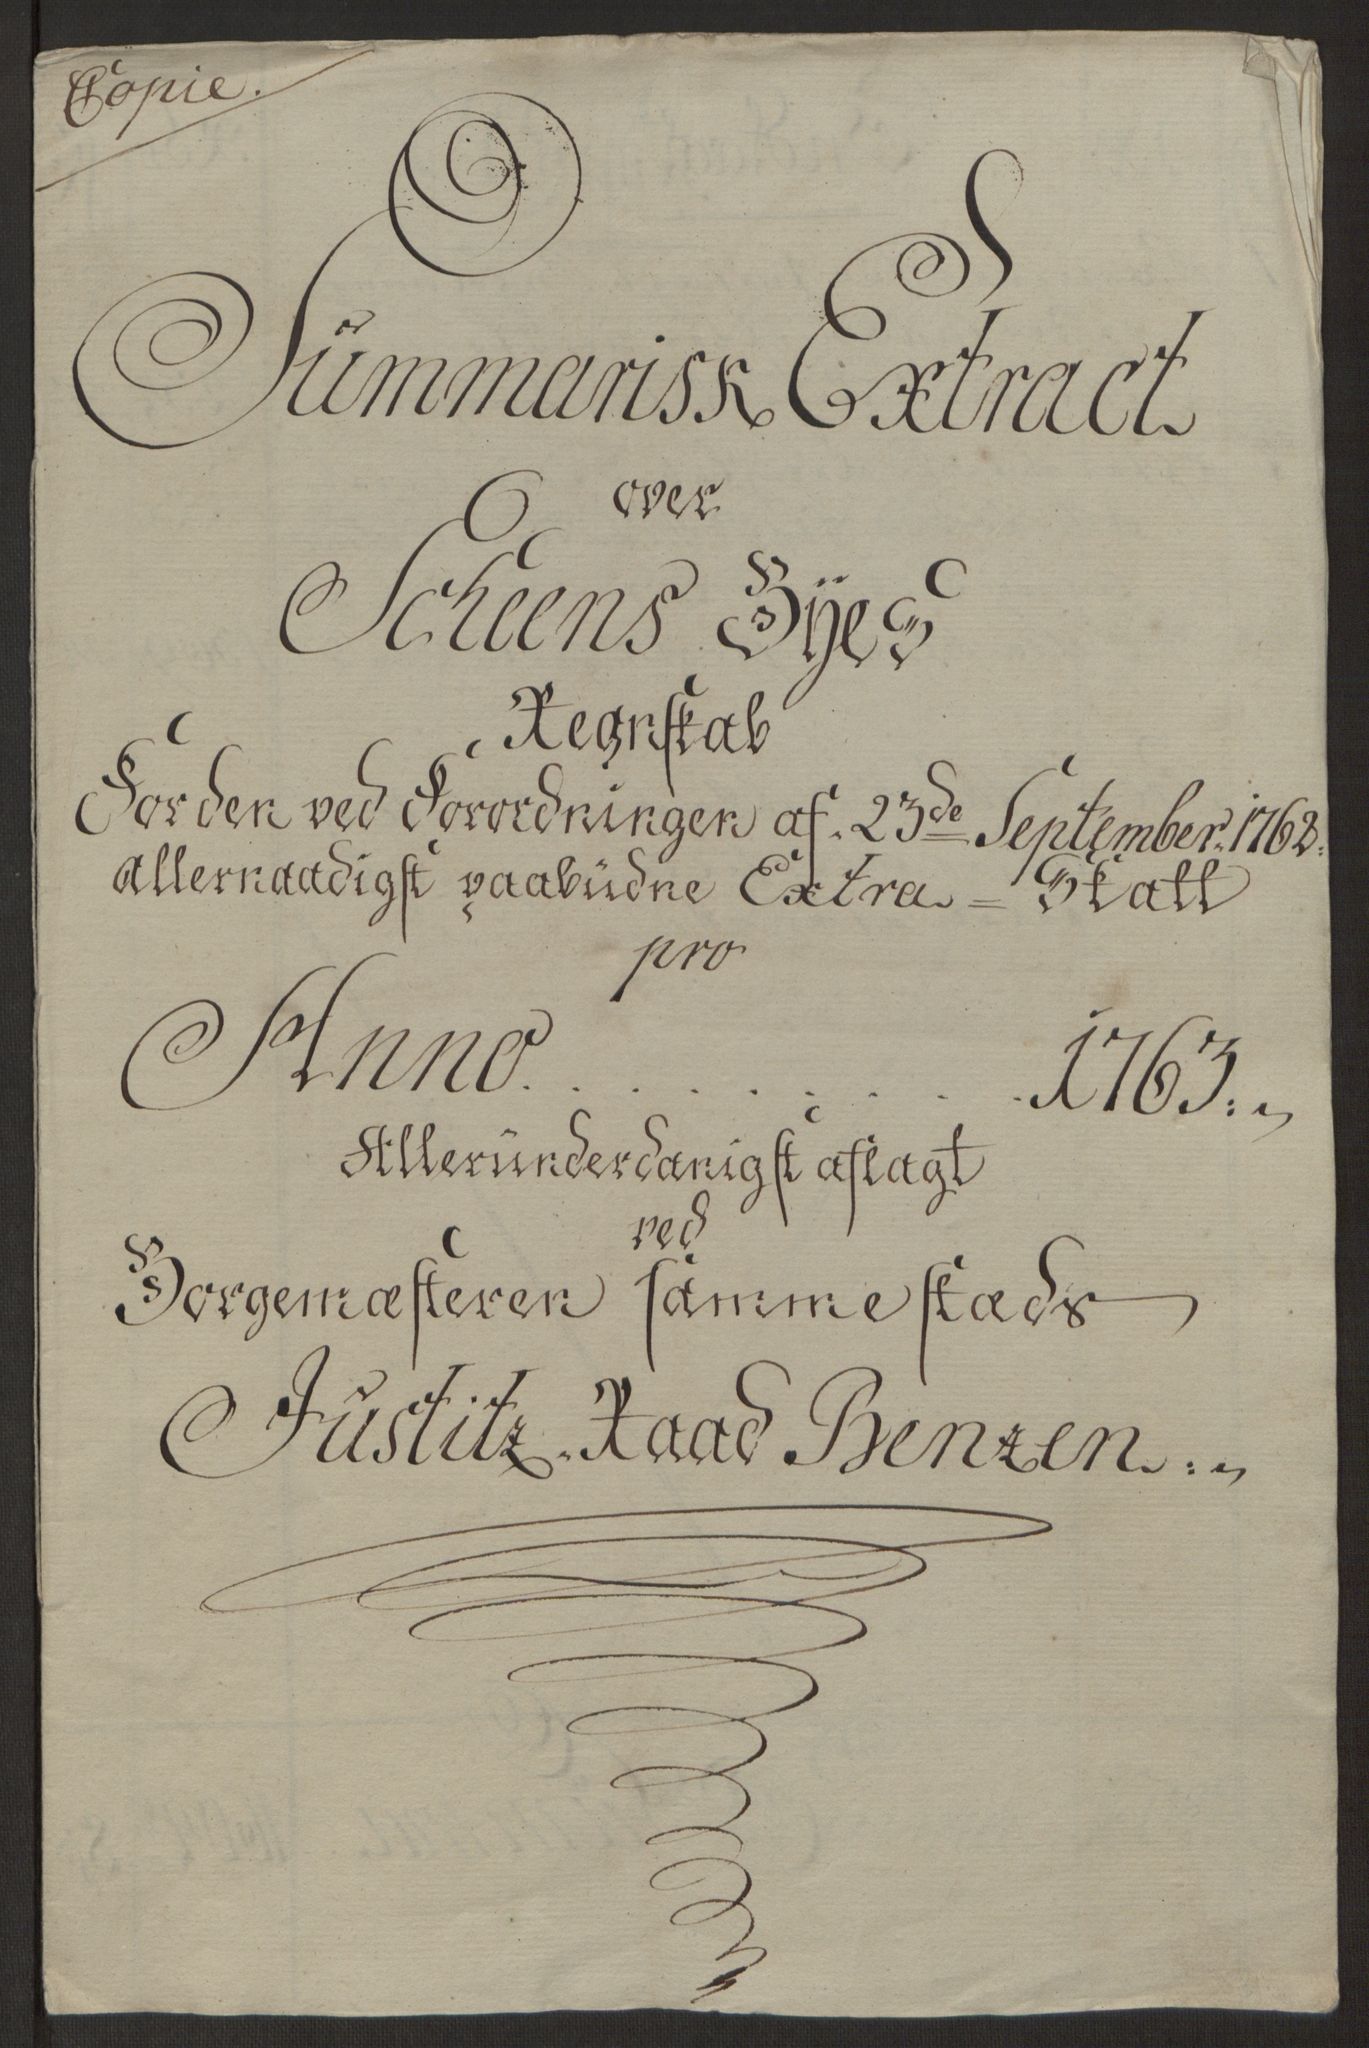 Copie.
Summarisk Extract
over
Scheens Bÿes
Regnskab
For den ved Forordningen af 23de September 1762.
allernaadigst paabudne Extra-Skatt
pro
Anno . . . . . . . . . 1763.
Allerunderdanigst aflagt
ved
Borgemæsteren sammestæds
Justitz-Raad Benzen.